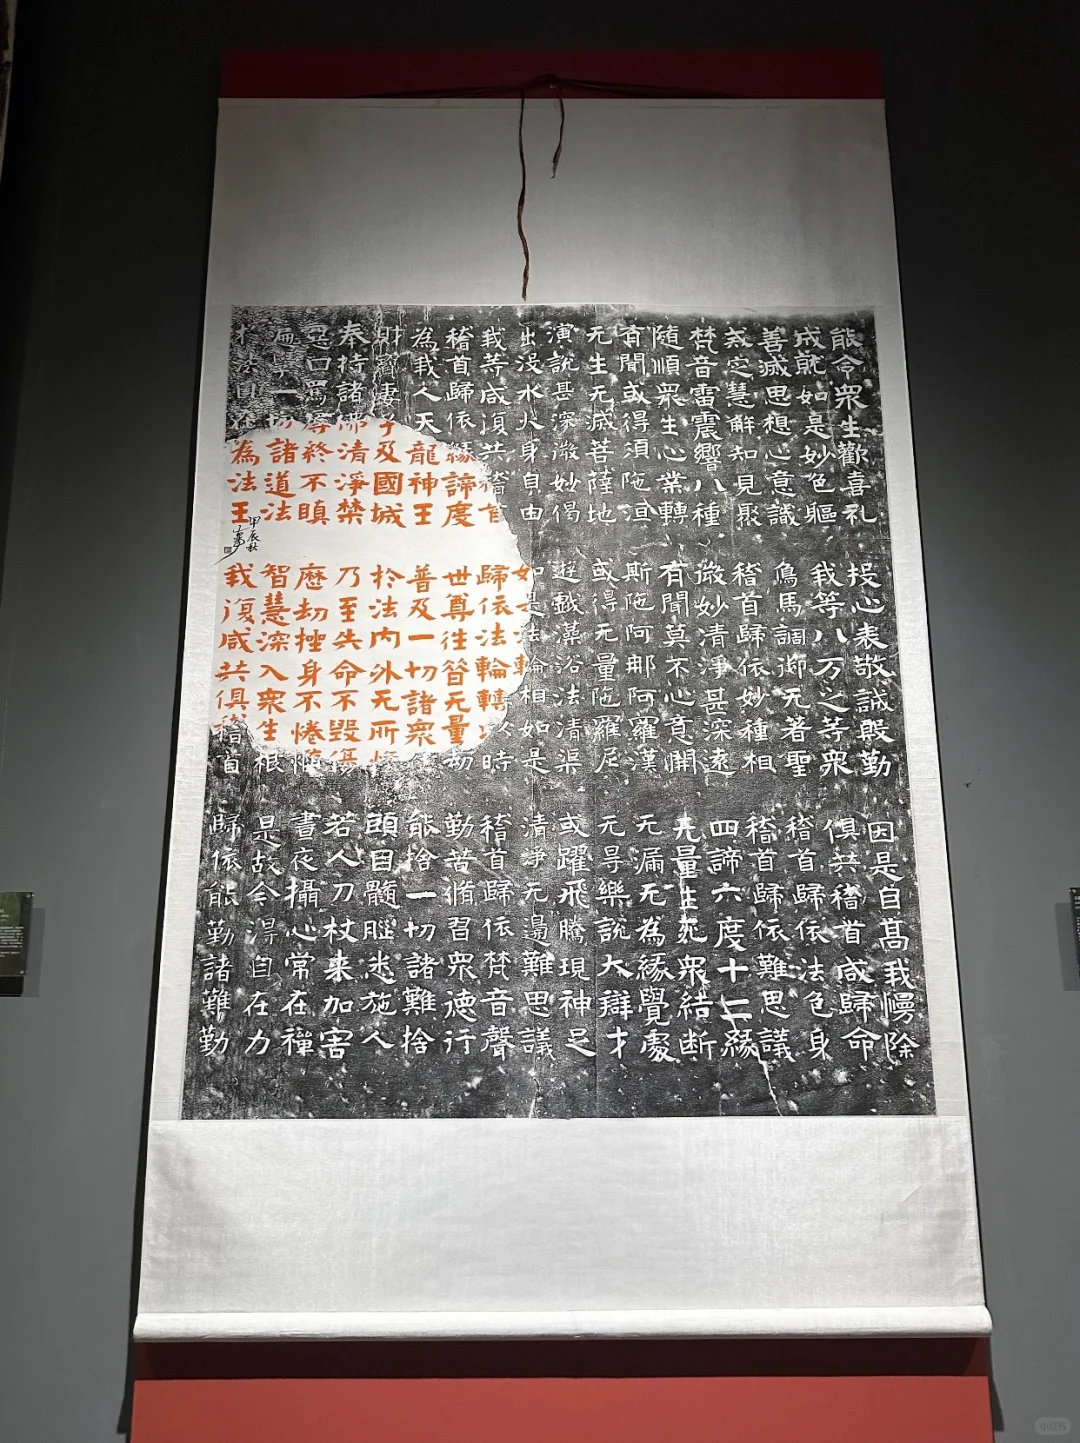 能令眾生歡喜礼 投心表敬誠殷勤 因是自高我慢除
成就如是妙色軀 我等八万之等眾 俱共稽首咸歸命
善滅思想心意識 象馬調御无著聖 稽首歸依法色身
戒定慧解知見聚 稽首歸依妙種相 稽首歸依難思議
梵音雷震響八種 微妙清淨甚深遠 四諦六度十二緣
隨順眾生心業轉 有聞莫不心意開 无量生死眾結断
有聞或得須陁洹 斯陁阿那阿羅漢 无漏无為緣覺處
无生无滅菩薩地 或得无量陁羅尼 无导樂說大辯才
演說甚深微妙偈 遊戲澡浴法清渠 或躍飛騰現神足
出没水火身自由 如是法輪相如是 清淨无邊難思議
我等咸復共稽首 歸依法輪轉以時 稽首歸依梵音聲
稽首歸依緣諦度 世尊往昔无量劫 勤苦脩習眾德行
為我人天龍神王 普及一切諸眾生 能捨一切諸難捨
財寶妻子及國城 於法内外无所悋 頭目髓腦悉施人
奉持諸佛清淨禁 乃至失命不毀傷 若人刀杖来加害
惡口罵辱終不瞋 歷劫挫身不惓惰 晝夜攝心常在禪
遍學一切諸道法 智慧深入眾生根 是故今得自在力
於法自在為法王 我復咸共俱稽首 歸依能勤諸難勤
甲辰秋
小红书